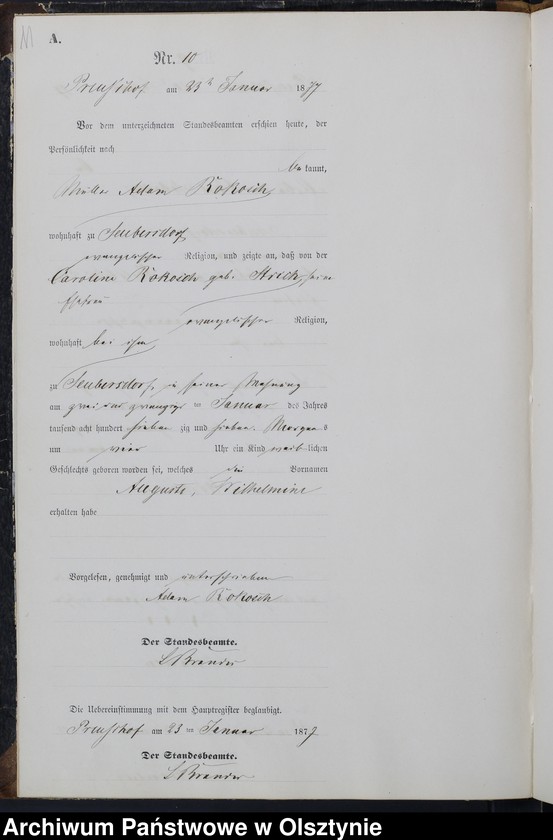 A.
Nr. 10
Preußhof am 23ten Januar 1877
Vor dem unterzeichneten Standesbeamten erschien heute, der
Persönlichkeit nach
bekannt,
Müller Adam Rokosch
wohnhaft zu Seubersdorf
evangelischer Religion, und zeigte an, daß von der
Caroline Rokosch geb. Strich, seiner
Ehefrau
evangelischer Religion,
wohnhaft bei ihm
zu Seubersdorf, in seiner Wohnung
am zwei und zwanzigsten Januar des Jahres
tausend acht hundert siebenzig und sieben Morgens
um vier Uhr ein Kind weiblichen
Geschlechts geboren worden sei, welches die Vornamen
Auguste, Wilhelmine
erhalten habe
Vorgelesen, genehmigt und unterschrieben
Adam Rokosch
Der Standesbeamte.
Die Uebereinstimmung mit dem Hauptregister beglaubigt.
Preußhof am 23ten Januar 1877
Der Standesbeamte.
Archiwum Państwowe w Olsztynie